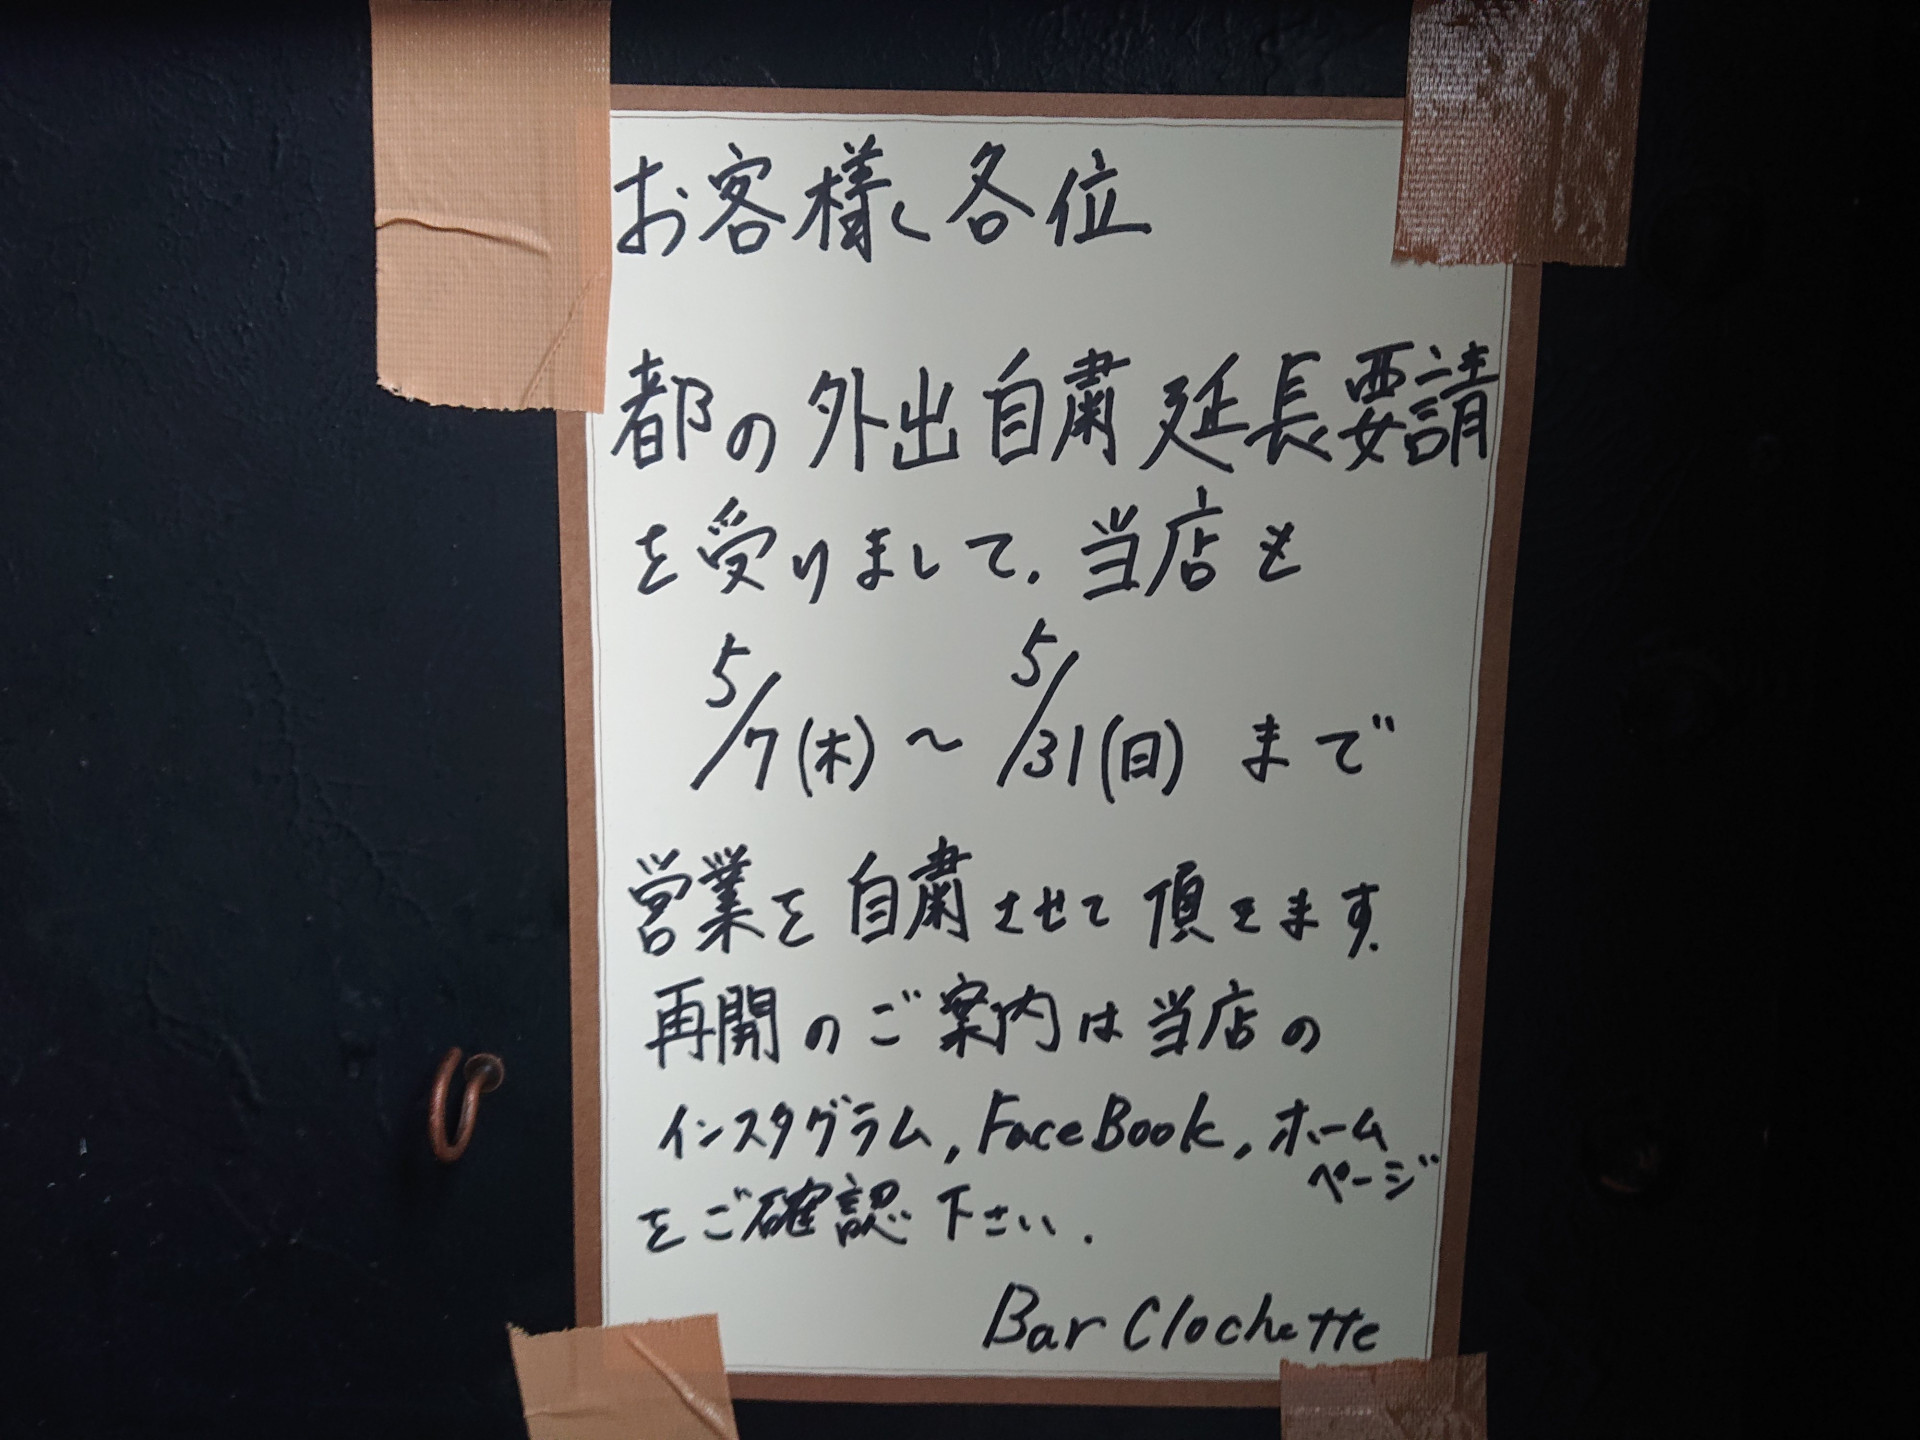 お客様各位
都の外出自粛延長要請
を受けまして、当店も
5/7(木)〜5/31(日)まで
営業を自粛させて頂きます。
再開のご案内は当店の
インスタグラム,FaceBook,ホームページ
をご確認下さい.
Bar Clochette